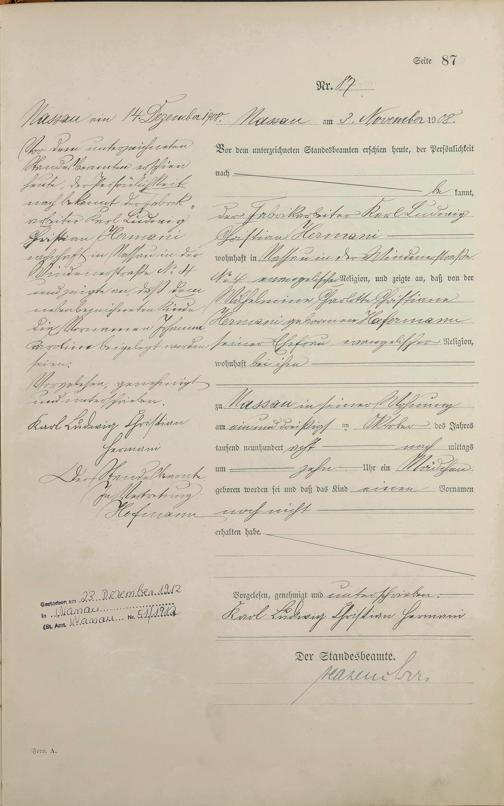 Seite 87
Nr. 87
Nassau am 3. November 1908.
Vor dem unterzeichneten Standesbeamten erschien heute, der Persönlichkeit
nach
be kannt,
der Fabrikarbeiter Karl Ludwig
Christian Hermani
wohnhaft in Nassau in der Windenerstraße
No 4 evangelischer Religion, und zeigte an, daß von der
Wilhelmine Charlotte Christiane
Hermani geborenen Hafermann
seiner Ehefrau, evangelischer Religion,
wohnhaft bei ihm
zu Nassau in seiner Wohnung
am einunddreißigsten Oktober des Jahres
tausend neunhundert acht nach mittags
um zehn Uhr ein Mädchen
geboren worden sei und daß das Kind einen Vornamen
noch nicht
erhalten habe.
Vorgelesen, genehmigt und unterschrieben.
Karl Ludwig Christian Hermani
Der Standesbeamte.
Form. A.
Nassau am 14. Dezember 1908.
Vor dem unterzeichneten
Standesbeamten erschien
heute, der Persönlichkeit
nach bekannt, der Fabrik-
arbeiter Karl Ludwig
Christian Hermani
wohnhaft in Nassau in der
Windenerstraße No 4
und zeigte an, daß dem
nebenbezeichneten Kinde
die Vornamen Johanna
Karoline beigelegt worden
seien.
Vorgelesen, genehmigt
und unterschrieben.
Karl Ludwig Christian
Hermani
Der Standesbeamte
In Vertretung
Hofmann
Gestorben am 23. Dezember 1912
in Nassau
(St. Amt Nassau Nr.